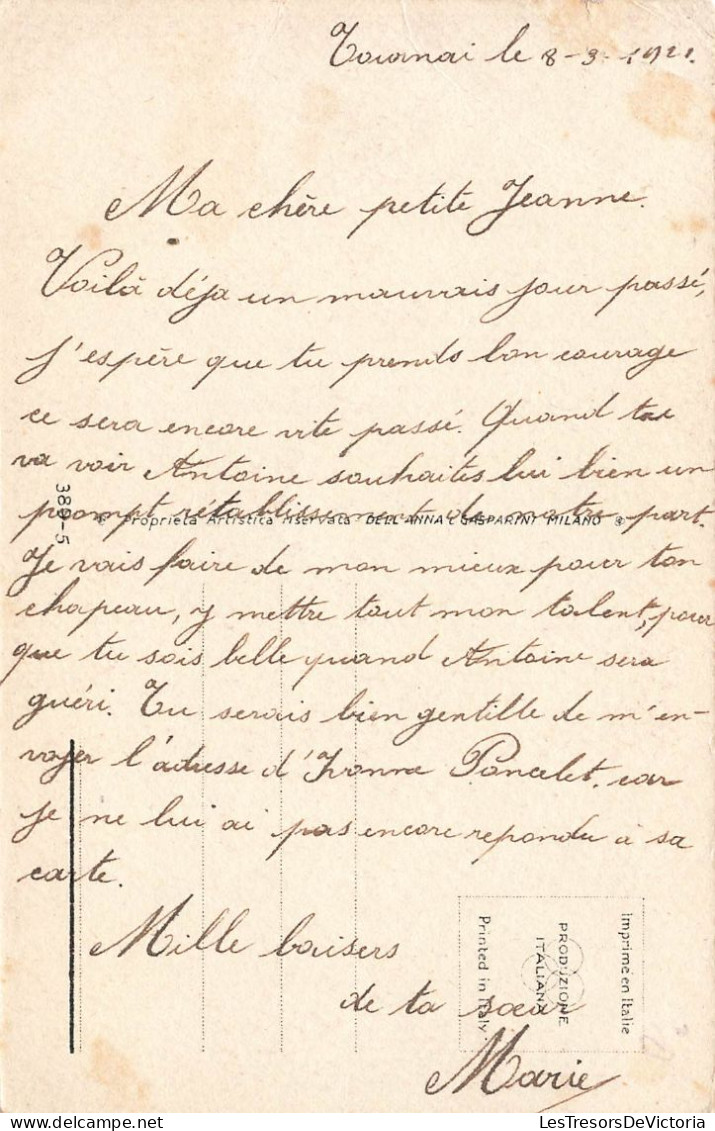 Tournai le 8-3-1921.
Ma chère petite Jeanne.
Voilà déja un mauvais jour passé,
j'espère que tu prends bon courage
ce sera encore vite passé. Quand tu
va voir Antoine souhaités lui bien un
prompt rétablissement de notre part.
® Proprietà Artistica riservata DELL'ANNA E GASPARINI MILANO ®
389-5
Je vais faire de mon mieux pour ton
chapeau, y mettre tout mon talent, pour
que tu sois belle quand Antoine sera
guéri. Tu serais bien gentille de m'en-
voyer l'adresse d'Ivonne Poncelet, car
je ne lui ai pas encore repondu à sa
carte.
Mille baisers
de ta sœur
Marie
Imprimé en Italie
PRODUZIONE
ITALIANA
Printed in Italy
LesTresorsDeVictoria